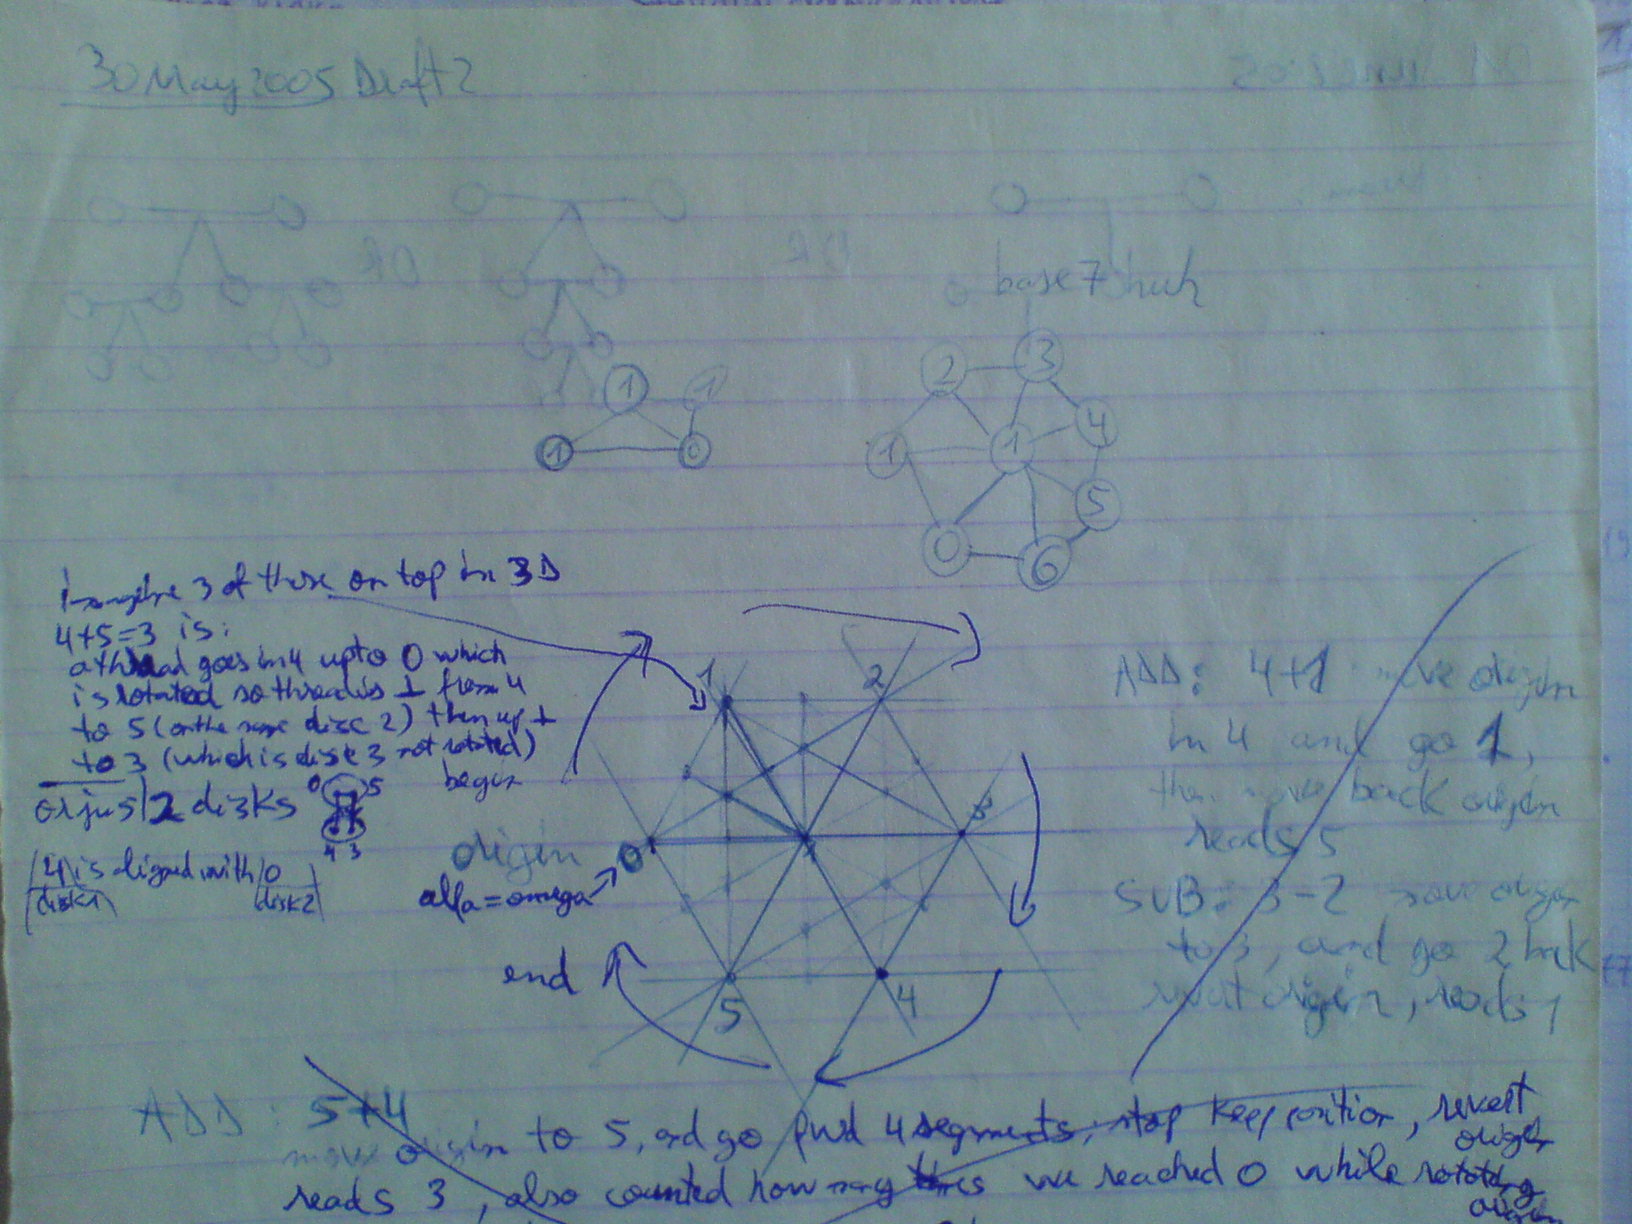 30 May 2005 Draft 2
OR
base 7 huh
2 3
1 1 4
1 1 4
1 0 5
0 6
Imagine 3 of these on top in 3D
4+5=3 is:
a thread goes in 4 up to 0 which
is rotated so thread is ⊥ from 4
to 5 (on the same disc 2) then up ⊥
to 3 (which is disk 3 not rotated)
begin
or just 2 disks 0 5
4 3
4 is aligned with 0
disk1 disk2
1 2
3
origin 0
alfa = omega
end
5 4
ADD: 4+1 move origin
in 4 and go 1,
then move back origin
reads 5
SUB: 3-2 move origin
to 3, and go 2 back
revert origin, reads 1
ADD: 5+4
move origin to 5, and go fwd 4 segments, stop keep position, revert
origin
reads 3, also counted how many times we reached 0 while rotating